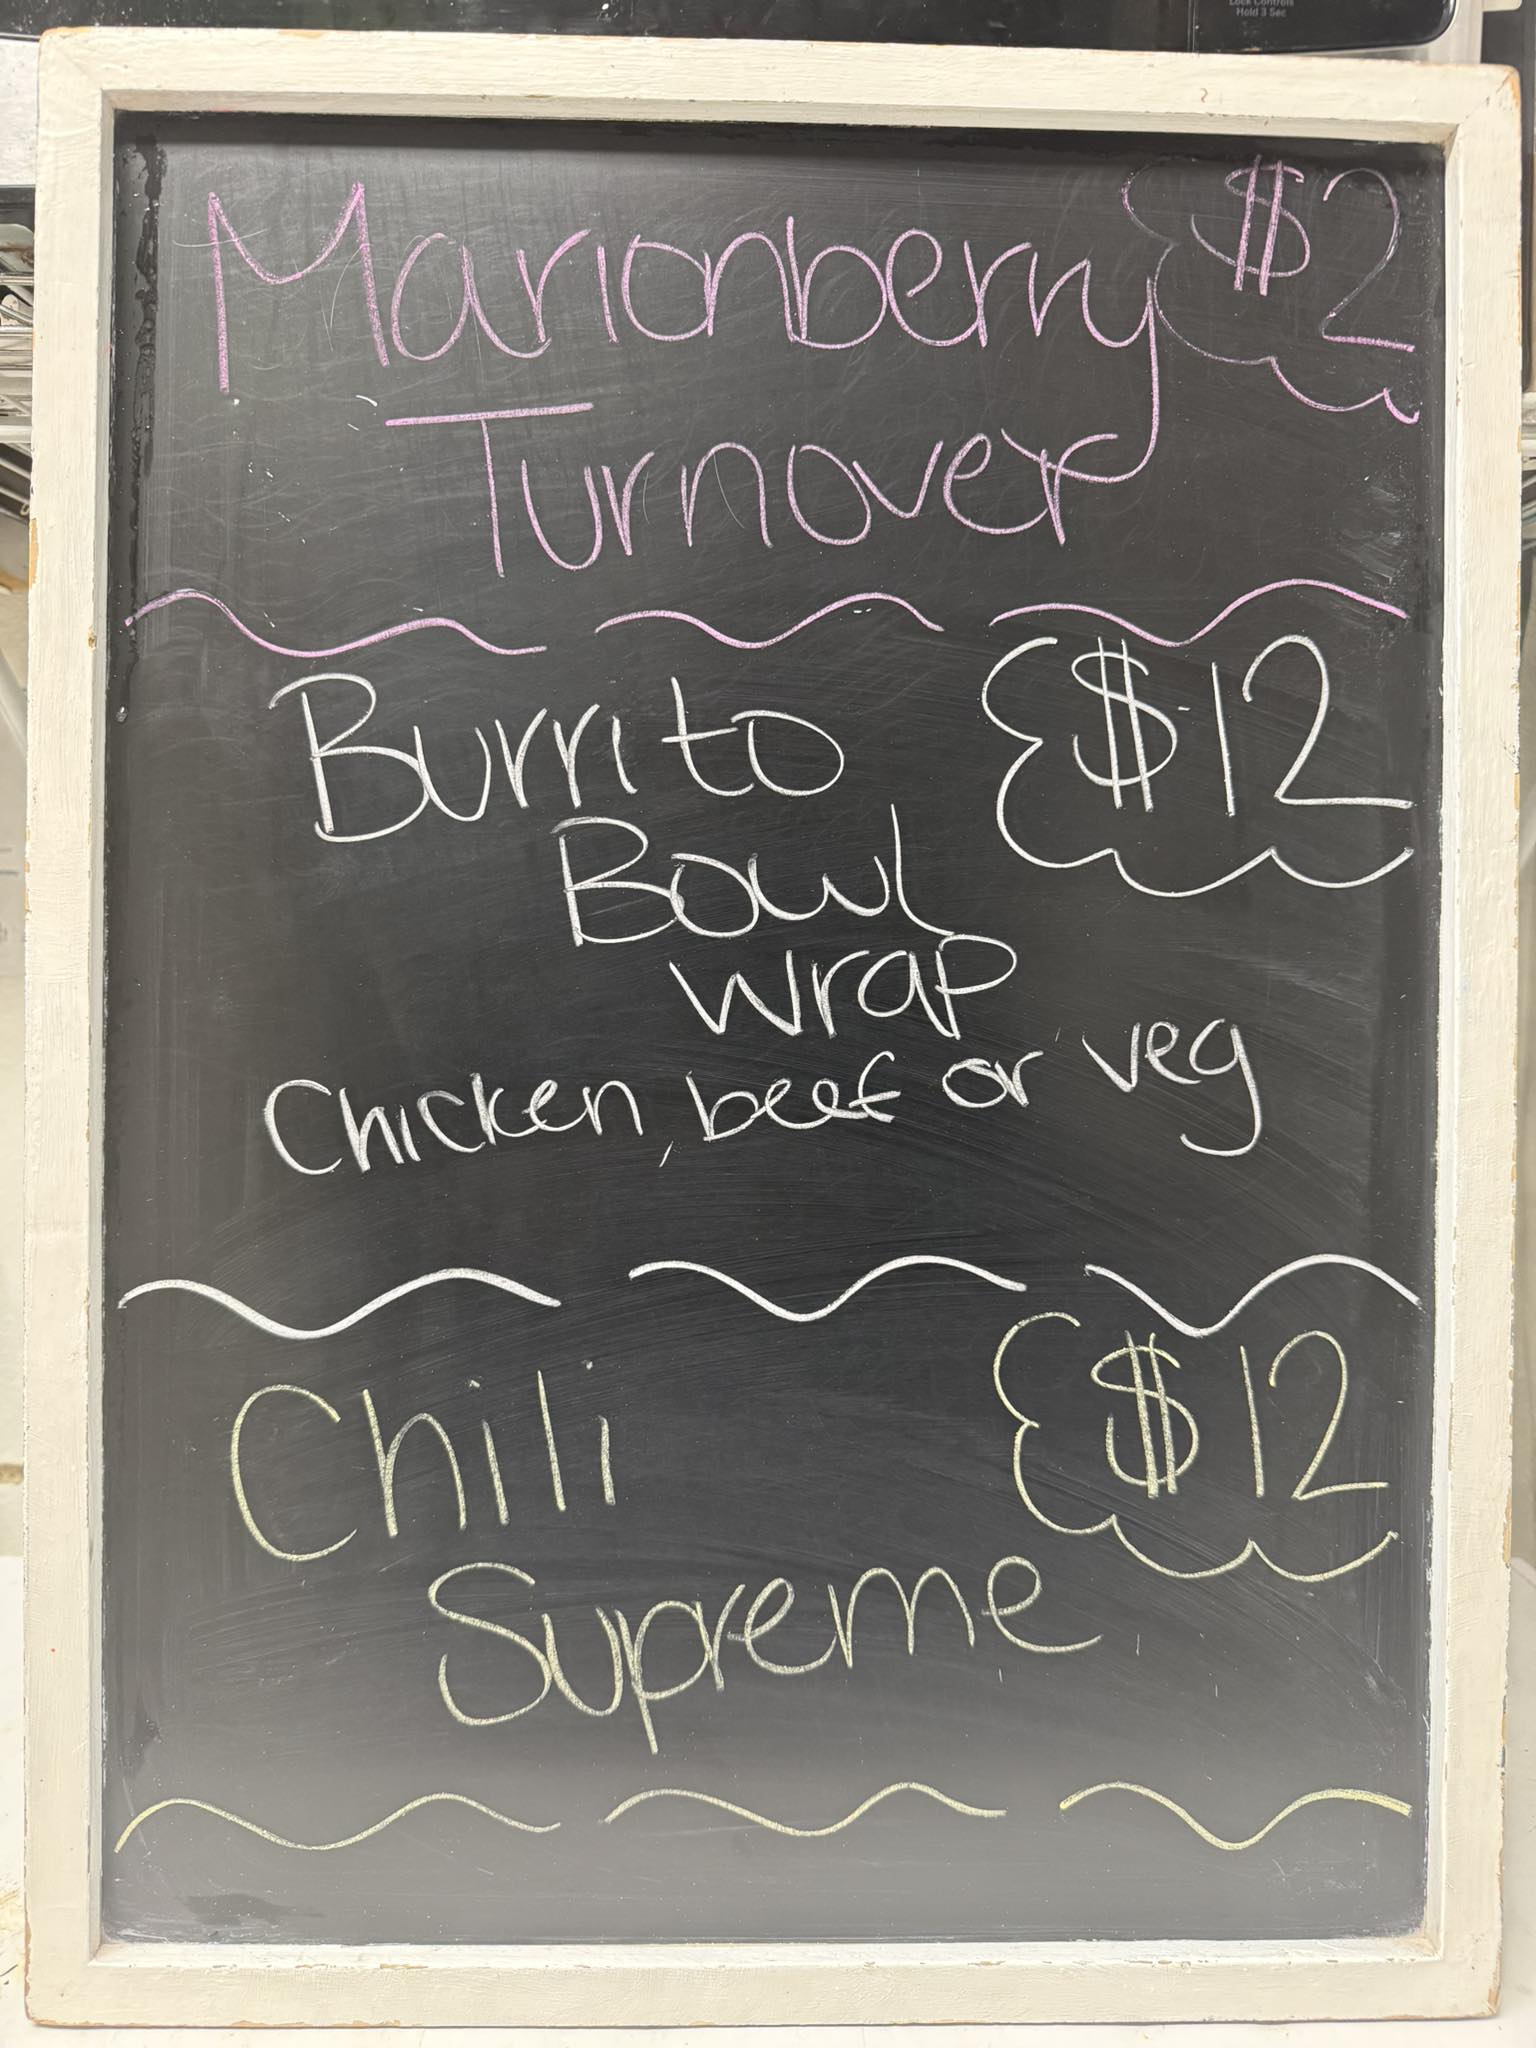 Lock Controls
Hold 3 Sec
Marionberry $2
Turnover
Burrito $12
Bowl
Wrap
Chicken, beef or veg
Chili $12
Supreme